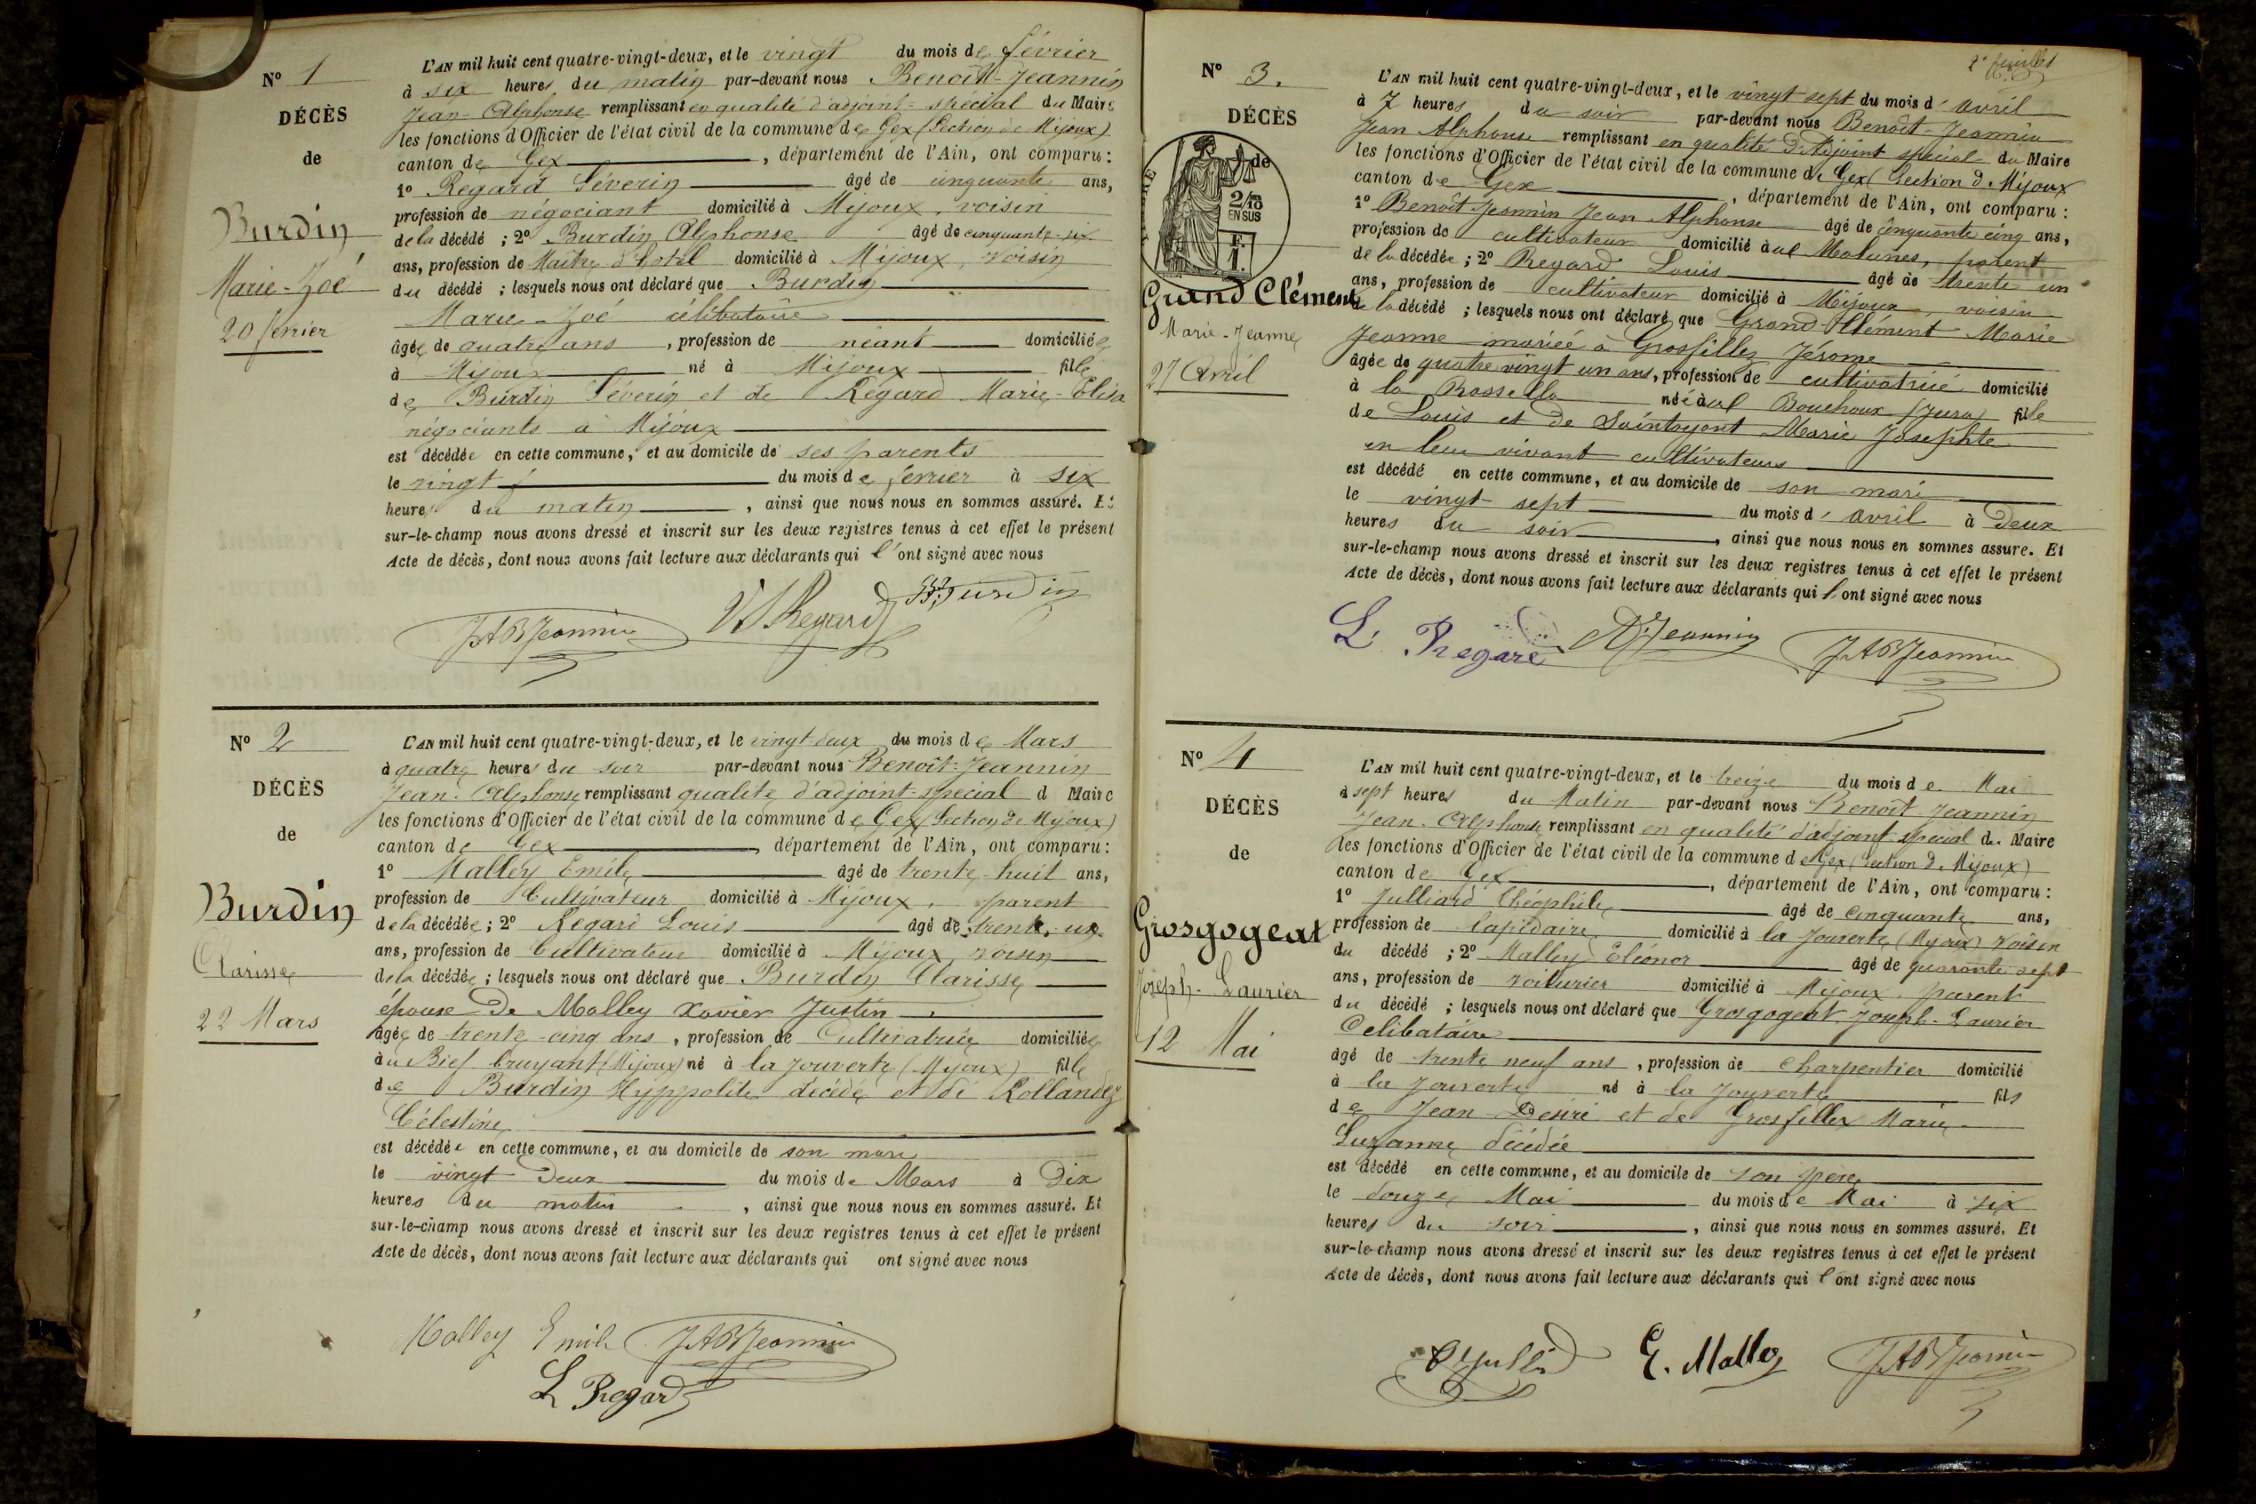 N° 1
DÉCÈS
de
Burdin
Marie-Zoé
20 février
L'AN mil huit cent quatre-vingt-deux, et le vingt du mois de février
à six heures du matin par-devant nous Benoît-Jeannin
Jean-Alphonse remplissant en qualité d'adjoint-spécial du Maire
les fonctions d'Officier de l'état civil de la commune de Gex (Section de Mijoux)
canton de Gex, département de l'Ain, ont comparu :
1° Regard Séverin âgé de cinquante ans,
profession de négociant domicilié à Mijoux, voisin
de la décédé ; 2° Burdin Alphonse âgé de cinquante-six
ans, profession de Maître d'hotel domicilié à Mijoux, voisin
du décédé ; lesquels nous ont déclaré que Burdin
Marie-Zoé célibataire
âgée de quatre ans, profession de néant domiciliée
à Mijoux né à Mijoux fille
de Burdin Séverin et de Regard Marie-Elisa
négociants à Mijoux
est décédée en cette commune, et au domicile de ses parents
le vingt du mois de février à six
heures du matin, ainsi que nous nous en sommes assuré. Et
sur-le-champ nous avons dressé et inscrit sur les deux registres tenus à cet effet le présent
Acte de décès, dont nous avons fait lecture aux déclarants qui l'ont signé avec nous
JABJeannin Regard Burdin
N° 2
DÉCÈS
de
Burdin
Clarisse
22 Mars
L'AN mil huit cent quatre-vingt-deux, et le vingt deux du mois de Mars
à quatre heures du soir par-devant nous Benoît-Jeannin
Jean-Alphonse remplissant qualité d'adjoint-spécial d Maire
les fonctions d'Officier de l'état civil de la commune de Gex (Section de Mijoux)
canton de Gex, département de l'Ain, ont comparu :
1° Malley Emile âgé de trente-huit ans,
profession de Cultivateur domicilié à Mijoux, parent
de la décédée ; 2° Regard Louis âgé de trente-un
ans, profession de Cultivateur domicilié à Mijoux, voisin
de la décédée ; lesquels nous ont déclaré que Burdin Clarisse
épouse De Malley Xavier Justin
âgée de trente-cinq ans, profession de Cultivatrice domiciliée
à u Bief bruyant (Mijoux) né à la Jouverte (Mijoux) fille
de Burdin Hyppolite décédé et de Rollandez
Célestine
est décédée en cette commune, et au domicile de son mari
le vingt Deux du mois de Mars à Dix
heures du matin, ainsi que nous nous en sommes assuré. Et
sur-le-champ nous avons dressé et inscrit sur les deux registres tenus à cet effet le présent
Acte de décès, dont nous avons fait lecture aux déclarants qui ont signé avec nous
Malley Emile JABJeannin
L Regard
2e feuillet
N° 3.
DÉCÈS
de
2/10
EN SUS
Grand Clément
Marie-Jeanne
27 Avril
L'AN mil huit cent quatre-vingt-deux, et le vingt sept du mois d'avril
à 7 heures du soir par-devant nous Benoît-Jeannin
Jean Alphonse remplissant en qualité d'Adjoint spécial du Maire
les fonctions d'Officier de l'état civil de la commune de Gex (Section d. Mijoux
canton de Gex, département de l'Ain, ont comparu :
1° Benoît-Jeannin Jean Alphonse âgé de cinquante cinq ans,
profession de cultivateur domicilié à ux Molunes, parent
de la décédée ; 2° Regard Louis âgé de trente un
ans, profession de cultivateur domicilié à Mijoux, voisin
de la décédé ; lesquels nous ont déclaré que Grand-Clément Marie
Jeanne mariée à Grosfillez Jérome
âgée de quatre vingt un ans, profession de cultivatrice domicilié
à la née à ux Bouchoux (Jura) fille
de Louis et de Saintoyant Marie Josephte
en leur vivant cultivateurs
est décédé en cette commune, et au domicile de son mari
le vingt sept du mois d'avril à Deux
heures du soir, ainsi que nous nous en sommes assure. Et
sur-le-champ nous avons dressé et inscrit sur les deux registres tenus à cet effet le présent
Acte de décès, dont nous avons fait lecture aux déclarants qui l'ont signé avec nous
L. Regard Jeannin JABJeannin
N° 4
DÉCÈS
de
Grosgogeat
Joseph-Laurier
12 Mai
L'AN mil huit cent quatre-vingt-deux, et le treize du mois de Mai
à sept heures du Matin par-devant nous Benoît Jeannin
Jean-Alphonse remplissant en qualité d'adjoint spécial du Maire
les fonctions d'Officier de l'état civil de la commune de Gex (Section d. Mijoux)
canton de Gex, département de l'Ain, ont comparu :
1° Julliard Théophile âgé de cinquante ans,
profession de lapidaire domicilié à la Jouverte (Mijoux) voisin
du décédé ; 2° Malley Eléonor âgé de quarante sept
ans, profession de voiturier domicilié à Mijoux, parent
du décédé ; lesquels nous ont déclaré que Grosgogeat Joseph-Laurier
Celibataire
âgé de trente neuf ans, profession de charpentier domicilié
à la Jouverte né à la Jouverte fils
de Jean Desiré et de Grosfillex Marie
Suzanne décédée
est décédé en cette commune, et au domicile de son père
le douze Mai du mois de Mai à six
heures du soir, ainsi que nous nous en sommes assuré. Et
sur-le-champ nous avons dressé et inscrit sur les deux registres tenus à cet effet le présent
Acte de décès, dont nous avons fait lecture aux déclarants qui l'ont signé avec nous
E. Malley JABJeannin